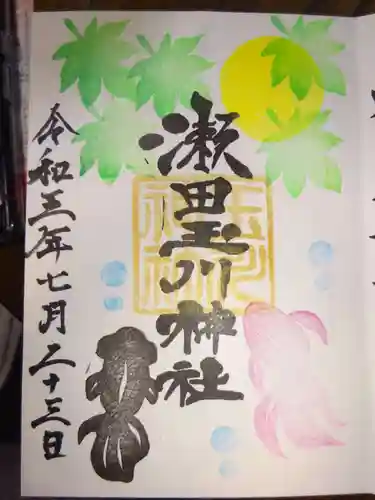 瀬田玉川神社
令和三年七月二十三日